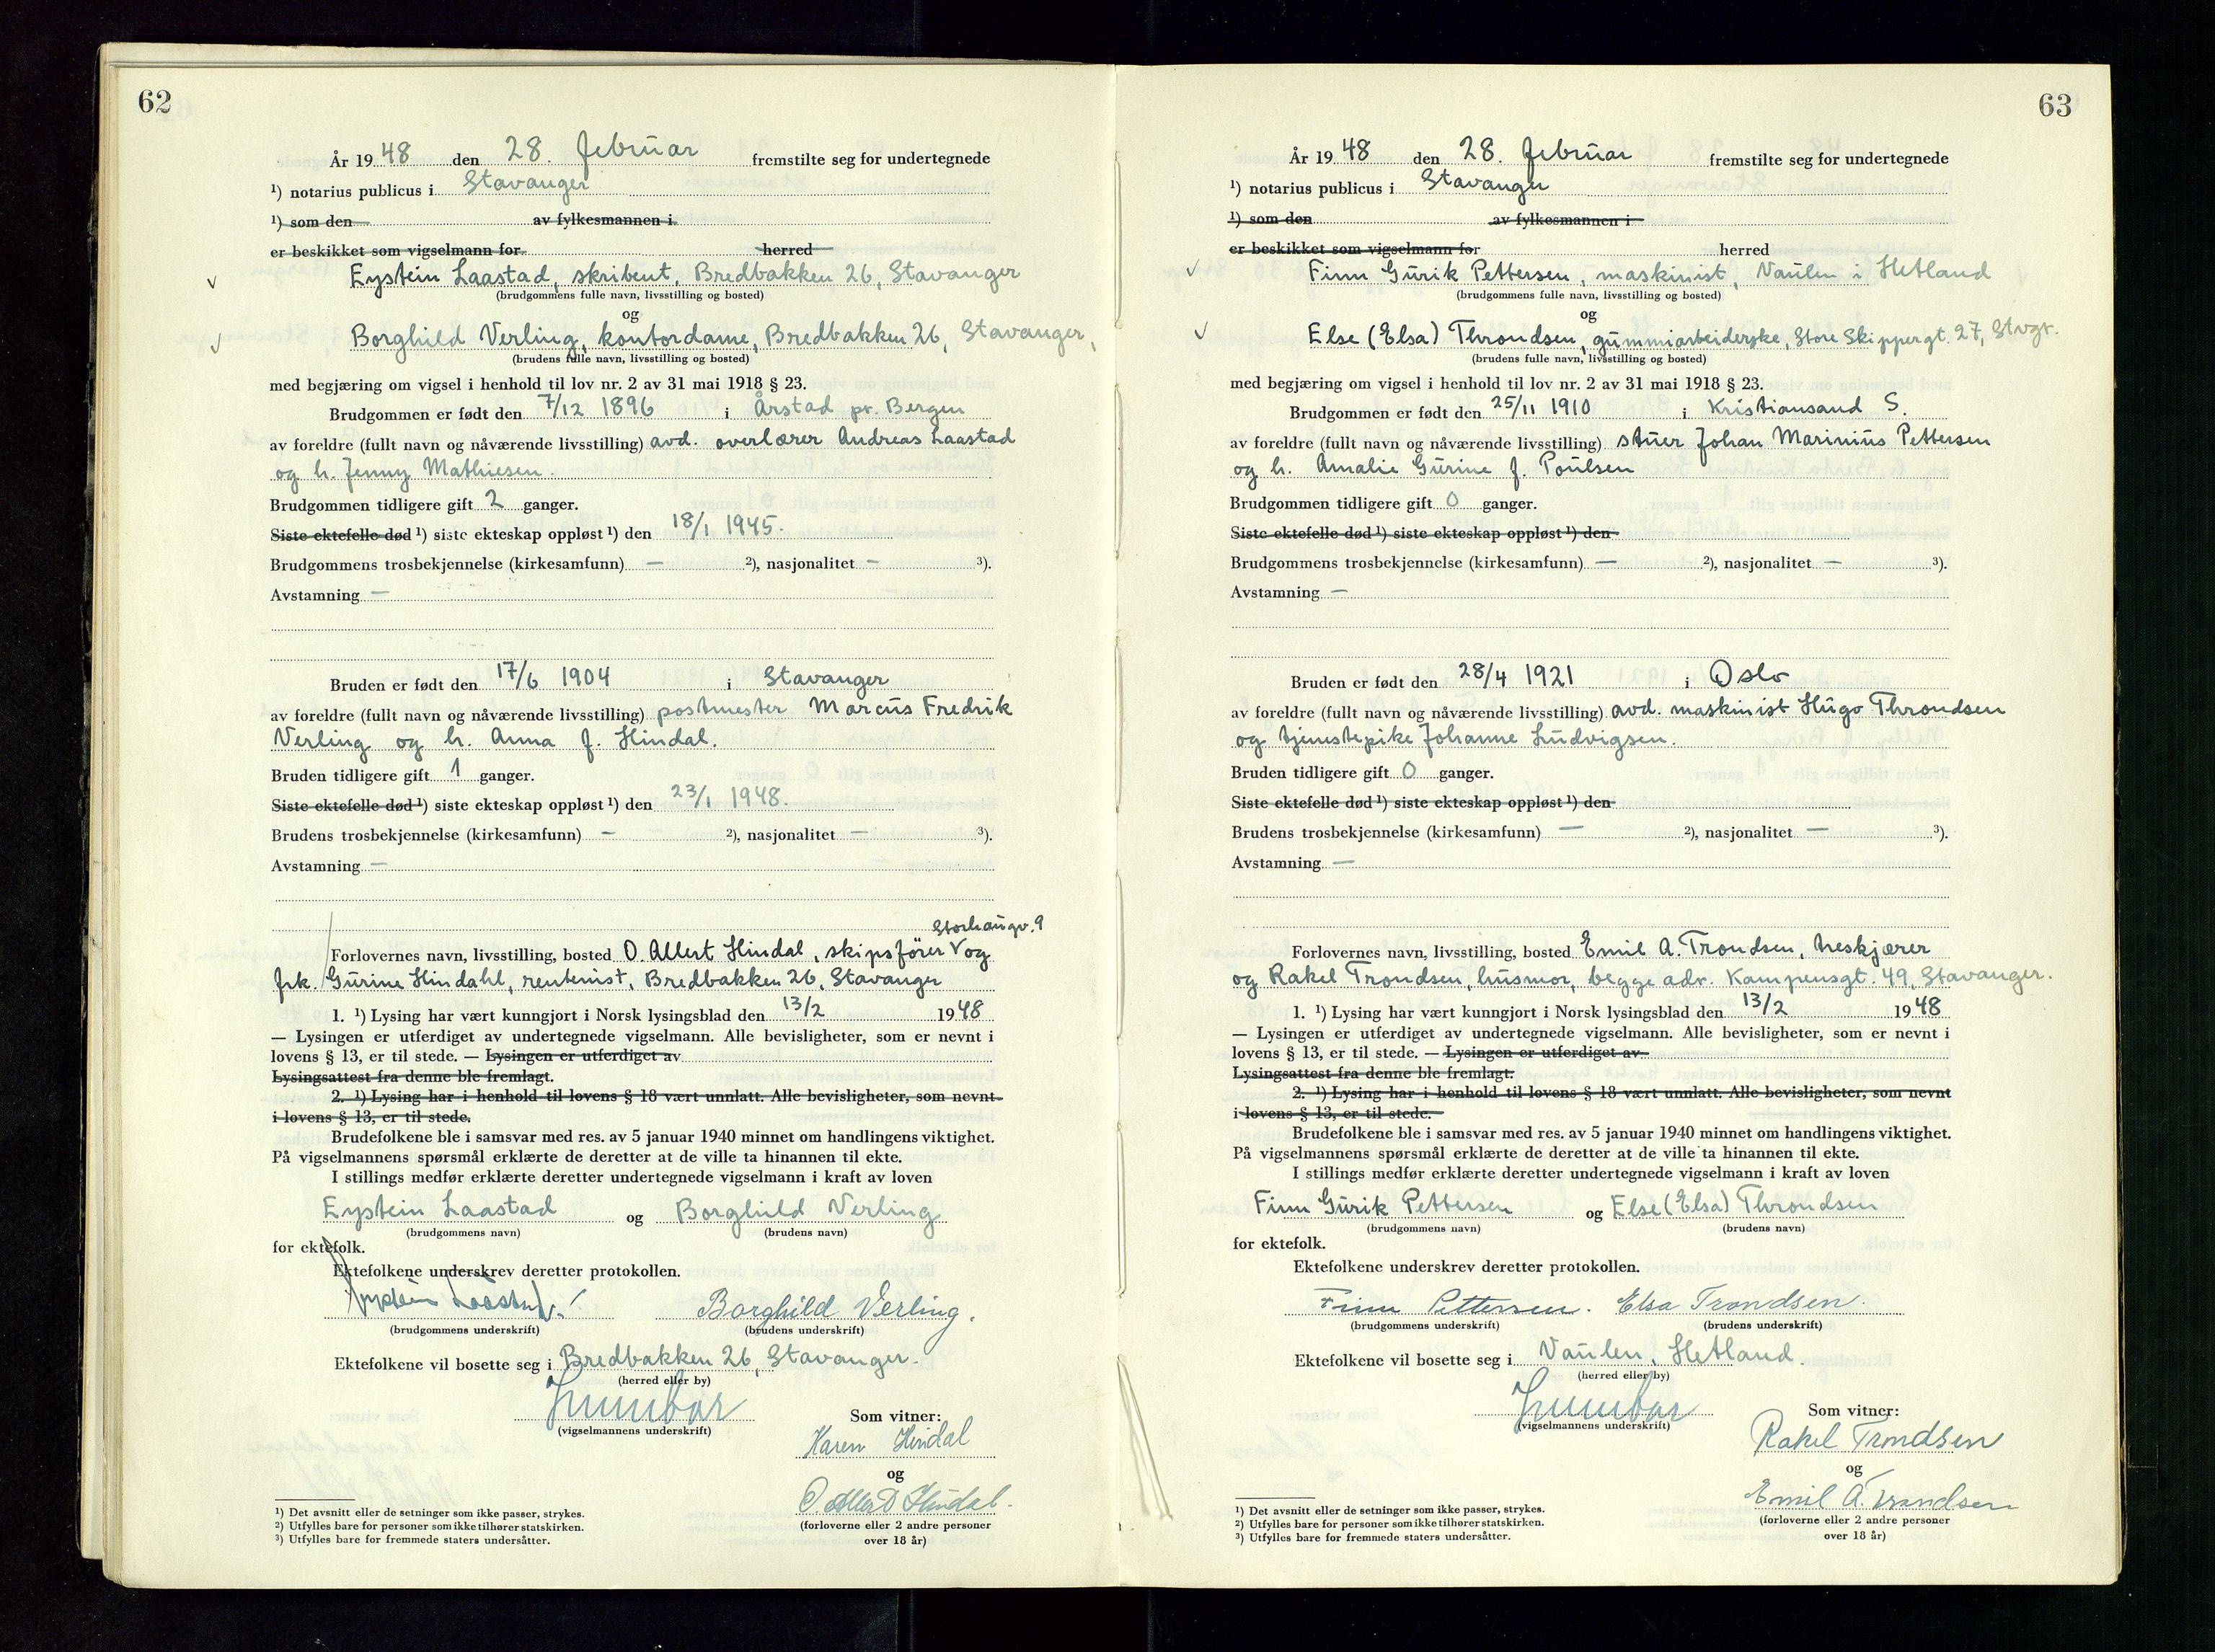 62
År 1948 den 28. februar fremstilte seg for undertegnede
¹) notarius publicus i Stavanger
¹) som den av fylkesmannen i
er beskikket som vigselmann for herred
Eystein Laastad, skribent, Bredbakken 26, Stavanger
(brudgommens fulle navn, livsstilling og bosted)
og
Borghild Verling, kontordame, Bredbakken 26, Stavanger,
(brudens fulle navn, livsstilling og bosted)
med begjæring om vigsel i henhold til lov nr. 2 av 31 mai 1918 § 23.
Brudgommen er født den 7/12 1896 i Årstad pr. Bergen
av foreldre (fullt navn og nåværende livsstilling) avd. overlærer Andreas Laastad
og h. Jenny Mathiesen.
Brudgommen tidligere gift 2 ganger.
Siste ektefelle død ¹) siste ekteskap oppløst ¹) den 18/1 1945.
Brudgommens trosbekjennelse (kirkesamfunn) — ²), nasjonalitet — ³).
Avstamning —
Bruden er født den 17/6 1904 i Stavanger
av foreldre (fullt navn og nåværende livsstilling) postmester Marcus Fredrik
Verling og h. Anna f. Hindal.
Bruden tidligere gift 1 ganger.
Siste ektefelle død ¹) siste ekteskap oppløst ¹) den 23/1 1948.
Brudens trosbekjennelse (kirkesamfunn) — ²), nasjonalitet — ³).
Avstamning —
Storhaugv. 9
Forlovernes navn, livsstilling, bosted O. Allert Hindal, skipsfører V og
frk. Gurine Hindahl, rentenist, Bredbakken 26, Stavanger
1. ¹) Lysing har vært kunngjort i Norsk lysingsblad den 13/2 1948
— Lysingen er utferdiget av undertegnede vigselmann. Alle bevisligheter, som er nevnt i
lovens § 13, er til stede. — Lysingen er utferdiget av
Lysingsattest fra denne ble fremlagt.
2. ¹) Lysing har i henhold til lovens § 18 vært unnlatt. Alle bevisligheter, som nevnt
i lovens § 13, er til stede.
Brudefolkene ble i samsvar med res. av 5 januar 1940 minnet om handlingens viktighet.
På vigselmannens spørsmål erklærte de deretter at de ville ta hinannen til ekte.
I stillings medfør erklærte deretter undertegnede vigselmann i kraft av loven
Eystein Laastad og Borghild Verling
(brudgommens navn) (brudens navn)
for ektefolk.
Ektefolkene underskrev deretter protokollen.
Eystein Laastad. Borghild Verling.
(brudgommens underskrift) (brudens underskrift)
Ektefolkene vil bosette seg i Bredbakken 26, Stavanger.
(herred eller by)
(vigselmannens underskrift)
Som vitner:
Karen Hindal
og
O. Allert Hindal.
(forloverne eller 2 andre personer
over 18 år)
¹) Det avsnitt eller de setninger som ikke passer, strykes.
²) Utfylles bare for personer som ikke tilhører statskirken.
³) Utfylles bare for fremmede staters undersåtter.
63
År 1948 den 28. februar fremstilte seg for undertegnede
¹) notarius publicus i Stavanger
¹) som den av fylkesmannen i
er beskikket som vigselmann for herred
Finn Gurik Pettersen, maskinist, Vaulen i Hetland
(brudgommens fulle navn, livsstilling og bosted)
og
Else (Elsa) Throndsen, gummiarbeiderske, Store Skippergt. 27, Stvgr.
(brudens fulle navn, livsstilling og bosted)
med begjæring om vigsel i henhold til lov nr. 2 av 31 mai 1918 § 23.
Brudgommen er født den 25/11 1910 i Kristiansand S.
av foreldre (fullt navn og nåværende livsstilling) stuer Johan Marinius Pettersen
og h. Amalie Gurine f. Poulsen
Brudgommen tidligere gift 0 ganger.
Siste ektefelle død ¹) siste ekteskap oppløst ¹) den
Brudgommens trosbekjennelse (kirkesamfunn) — ²), nasjonalitet — ³).
Avstamning —
Bruden er født den 28/4 1921 i Oslo
av foreldre (fullt navn og nåværende livsstilling) avd. maskinist Hugo Throndsen
og tjenestepike Johanne Ludvigsen.
Bruden tidligere gift 0 ganger.
Siste ektefelle død ¹) siste ekteskap oppløst ¹) den
Brudens trosbekjennelse (kirkesamfunn) — ²), nasjonalitet — ³).
Avstamning —
Forlovernes navn, livsstilling, bosted Emil A. Trondsen, treskjærer
og Rakel Trondsen, husmor, begge adr. Kampensgt. 49, Stavanger.
1. ¹) Lysing har vært kunngjort i Norsk lysingsblad den 13/2 1948
— Lysingen er utferdiget av undertegnede vigselmann. Alle bevisligheter, som er nevnt i
lovens § 13, er til stede. — Lysingen er utferdiget av
Lysingsattest fra denne ble fremlagt.
2. ¹) Lysing har i henhold til lovens § 18 vært unnlatt. Alle bevisligheter, som nevnt
i lovens § 13, er til stede.
Brudefolkene ble i samsvar med res. av 5 januar 1940 minnet om handlingens viktighet.
På vigselmannens spørsmål erklærte de deretter at de ville ta hinannen til ekte.
I stillings medfør erklærte deretter undertegnede vigselmann i kraft av loven
Finn Gurik Pettersen og Else (Elsa) Throndsen
(brudgommens navn) (brudens navn)
for ektefolk.
Ektefolkene underskrev deretter protokollen.
Finn Pettersen. Elsa Trondsen.
(brudgommens underskrift) (brudens underskrift)
Ektefolkene vil bosette seg i Vaulen, Hetland.
(herred eller by)
(vigselmannens underskrift)
Som vitner:
Rakel Trondsen
og
Emil A. Trondsen
(forloverne eller 2 andre personer
over 18 år)
¹) Det avsnitt eller de setninger som ikke passer, strykes.
²) Utfylles bare for personer som ikke tilhører statskirken.
³) Utfylles bare for fremmede staters undersåtter.